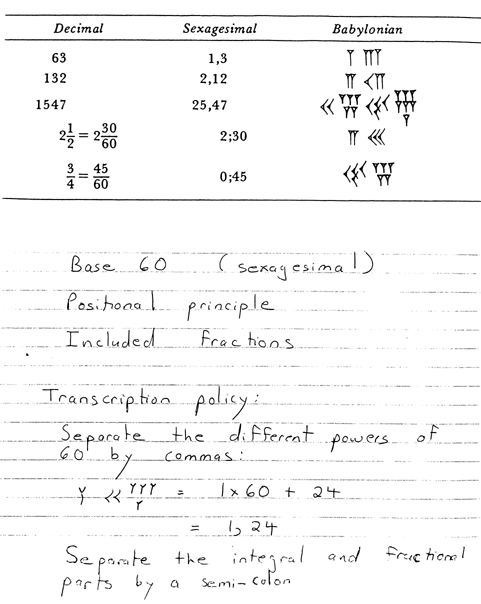 Decimal Sexagesimal Babylonian
63 1,3
132 2,12
1547 25,47
2 1/2 = 2 30/60 2;30
3/4 = 45/60 0;45
Base 60 (sexagesimal)
Positional principle
Included fractions
Transcription policy:
Separate the different powers of
60 by commas:
= 1 x 60 + 24
= 1, 24
Separate the integral and fractional
parts by a semi-colon